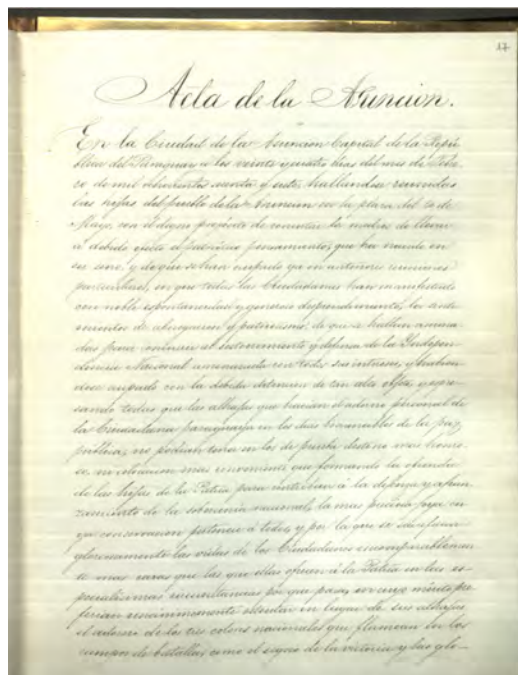 17
Acta de la Asuncion.
En la Ciudad de la Asuncion Capital de la Repú-
blica del Paraguay a los veinte y cuatro dias del mes de Febre-
ro de mil ochocientos sesenta y siete, hallandose reunidas
las hijas del pueblo de la Asuncion en la plaza del 14 de
Mayo, con el digno propósito de de llevar
a debido efecto el patriótico pensamiento, que ha nacido en
su seno, y de que se han ocupado ya en anteriores reuniones
particulares, en que todas las Ciudadanas han manifestado
con noble espontaneidad y generoso desprendimiento, los senti-
mientos de abnegacion y patriotismo, de que se hallan anima-
das para contribuir al sostenimiento y defensa de la Indepen-
dencia Nacional amenazada con todos sus intereses, y habien-
dose ocupado con la debida detencion de tan alto objeto, y espre-
sando todas que las alhajas que hacian el adorno personal de
la Ciudadana paraguaya en los dias de la paz
pública, no podian tener en los de prueba destino mas honro-
so, ni colocacion mas que formando la ofrenda
de las hijas de la Patria para contribuir á la defensa y afian-
zamiento de la soberania nacional, la mas preciosa joya cu-
ya conservacion pertenece á todos, y por la que se sacrifican
gloriosamente las vidas de los Ciudadanos incomparablemen-
te mas caras que las que ellas ofrecen á la Patria en las es-
peciales circunstancias por que pasa, en cuyo mérito pre-
ferian ostentar en lugar de sus alhajas
el adorno de los tres colores nacionales que flamean en los
campos de batalla, como el signo de la victoria y las glo-